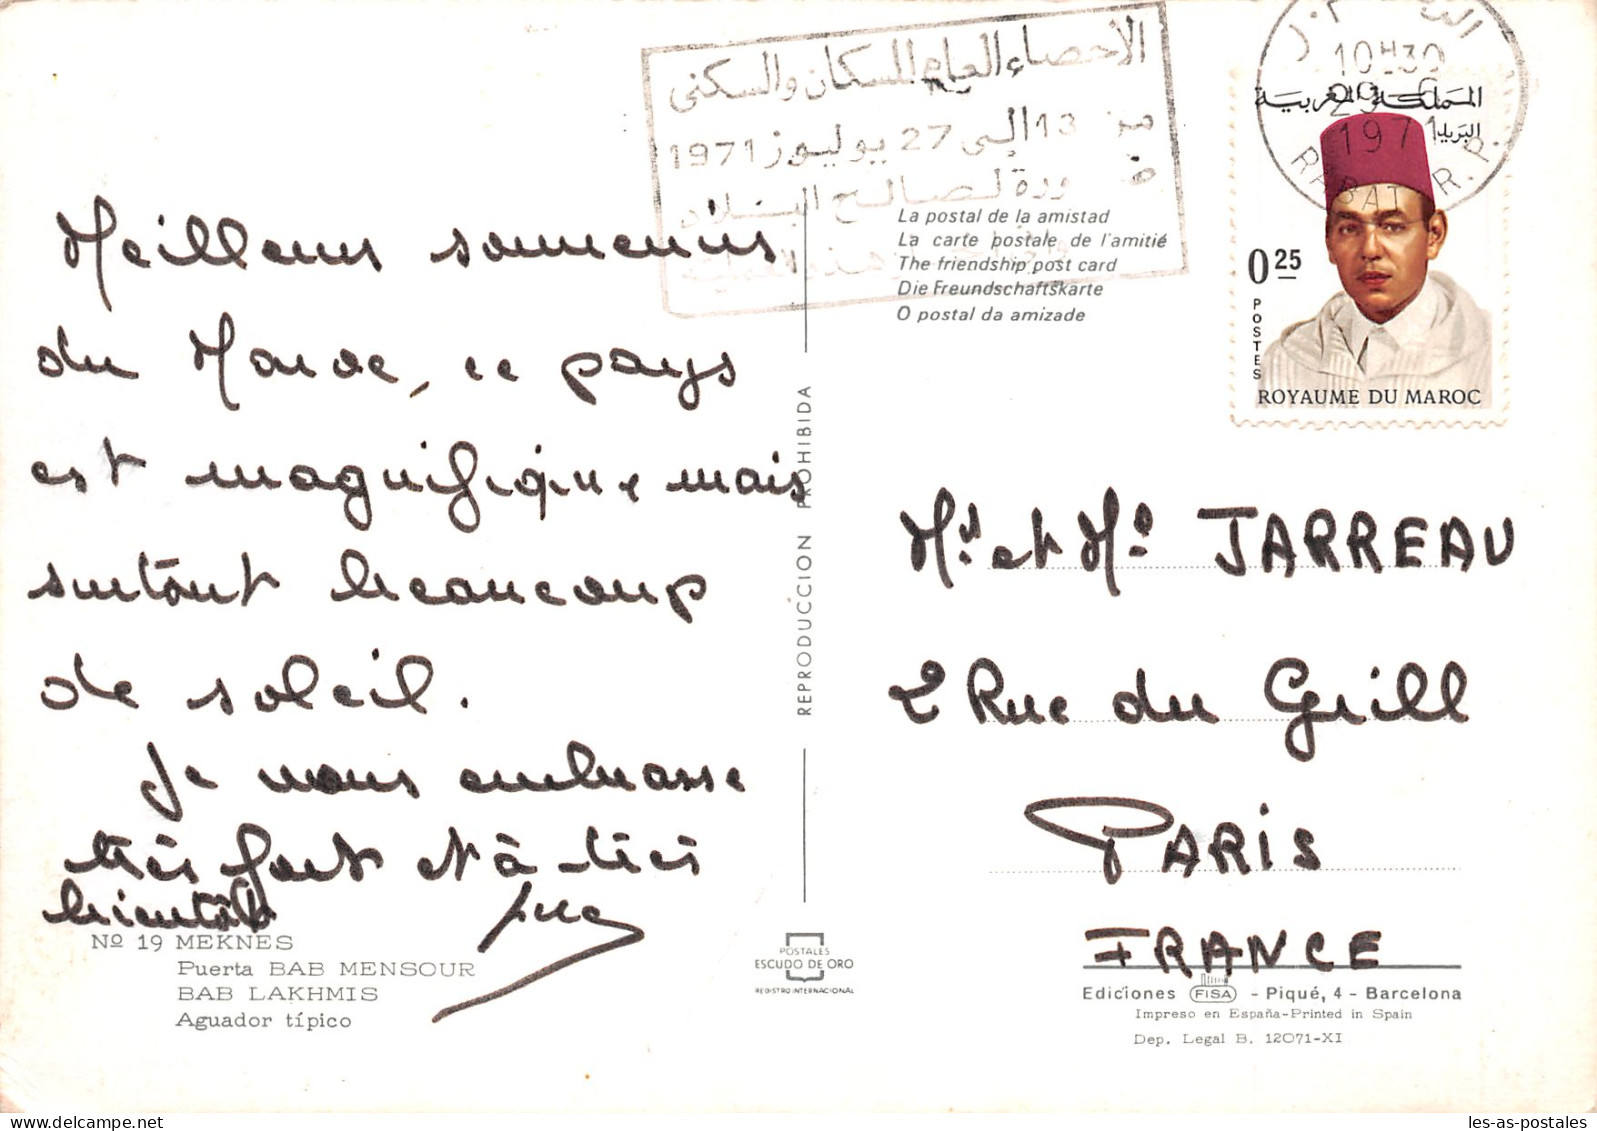 الاحصاء العام للسكان والسكنى
من 13 الى 27 يوليوز 1971
لصالح البلاد
10H30
1971
RABAT R.P.
المملكة المغربية
البريد
0.25
POSTES
ROYAUME DU MAROC
La postal de la amistad
La carte postale de l'amitié
The friendship post card
Die Freundschaftskarte
O postal da amizade
Meilleurs souvenirs
du Maroc, ce pays
est magnifique mais
surtout beaucoup
de soleil.
Je vous embrasse
très fort et à très
bientôt
Nº 19 MEKNES
Puerta BAB MENSOUR
BAB LAKHMIS
Aguador típico
REPRODUCCION PROHIBIDA
POSTALES
ESCUDO DE ORO
REGISTRO INTERNACIONAL
Mr et Me JARREAU
2 Rue du Grill
PARIS
FRANCE
Ediciones FISA - Piqué, 4 - Barcelona
Impreso en España-Printed in Spain
Dep. Legal B. 12071-XI
les-as-postales